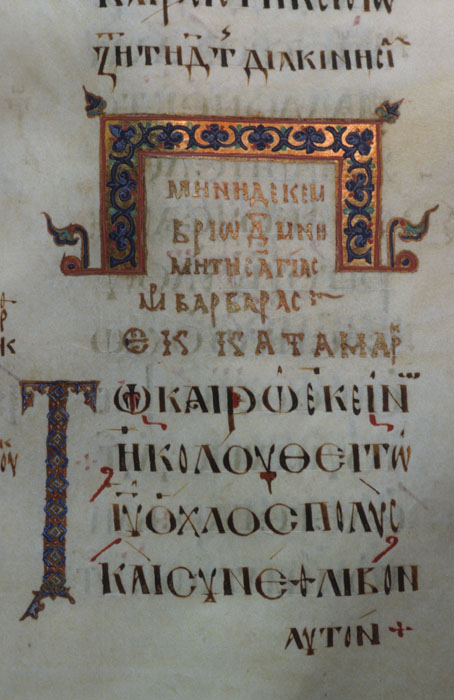 ΖΗΤΗ Δ Τ ΔΙΑΚΙΝΗCΙ
ΜΗΝΗ ΔΕΚΕΜ
ΒΡΙΩ Δ ΜΝΗ
ΜΗ ΤΗC ΑΓΙΑC
Μ ΒΑΡΒΑΡΑC
ΕΚ Κ ΚΑΤΑ ΜΑΡ
ΤΩ ΚΑΙΡΩ ΕΚΕΙΝ
ΗΚΟΛΟΥΘΕΙ ΤΩ
ΙΥ ΟΧΛΟC ΠΟΛΥC
ΚΑΙ CΥΝΕΘΛΙΒΟΝ
ΑΥΤΟΝ +